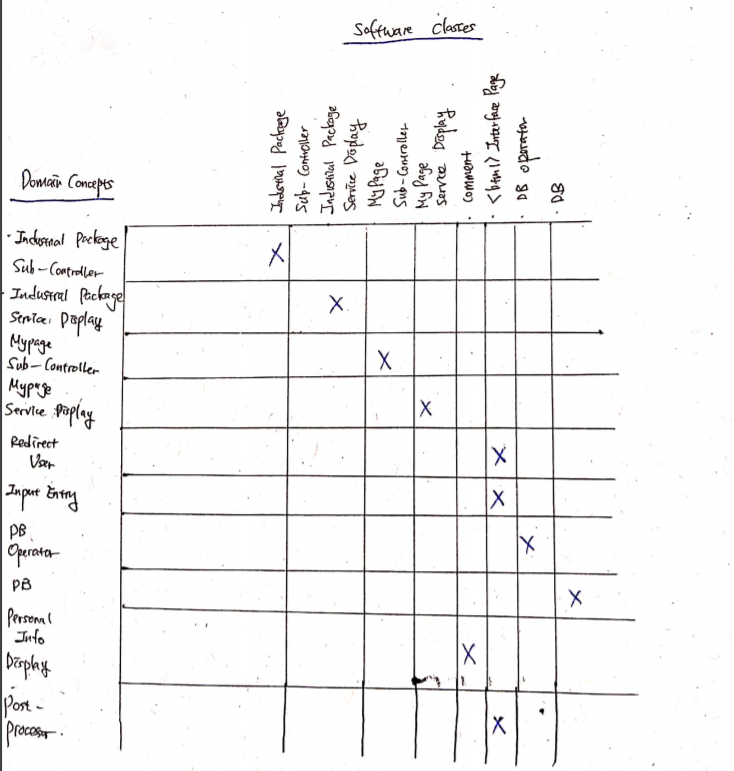 Software Classes
Domain Concepts
Industrial Package
Sub-Controller
Industrial Package
Service Display
My Page
Sub-Controller
My Page
Service Display
· Comment
· <html> Interface Page
· DB operator
· DB
· Industrial Package
Sub-Controller
· Industrial Package
Service Display
Mypage
Sub-Controller
Mypage
Service Display
Redirect
User
Input Entry
DB
Operator
DB
Personal
Info
Display
Post-
Processor.
X
X
X
X
X
X
X
X
X
X